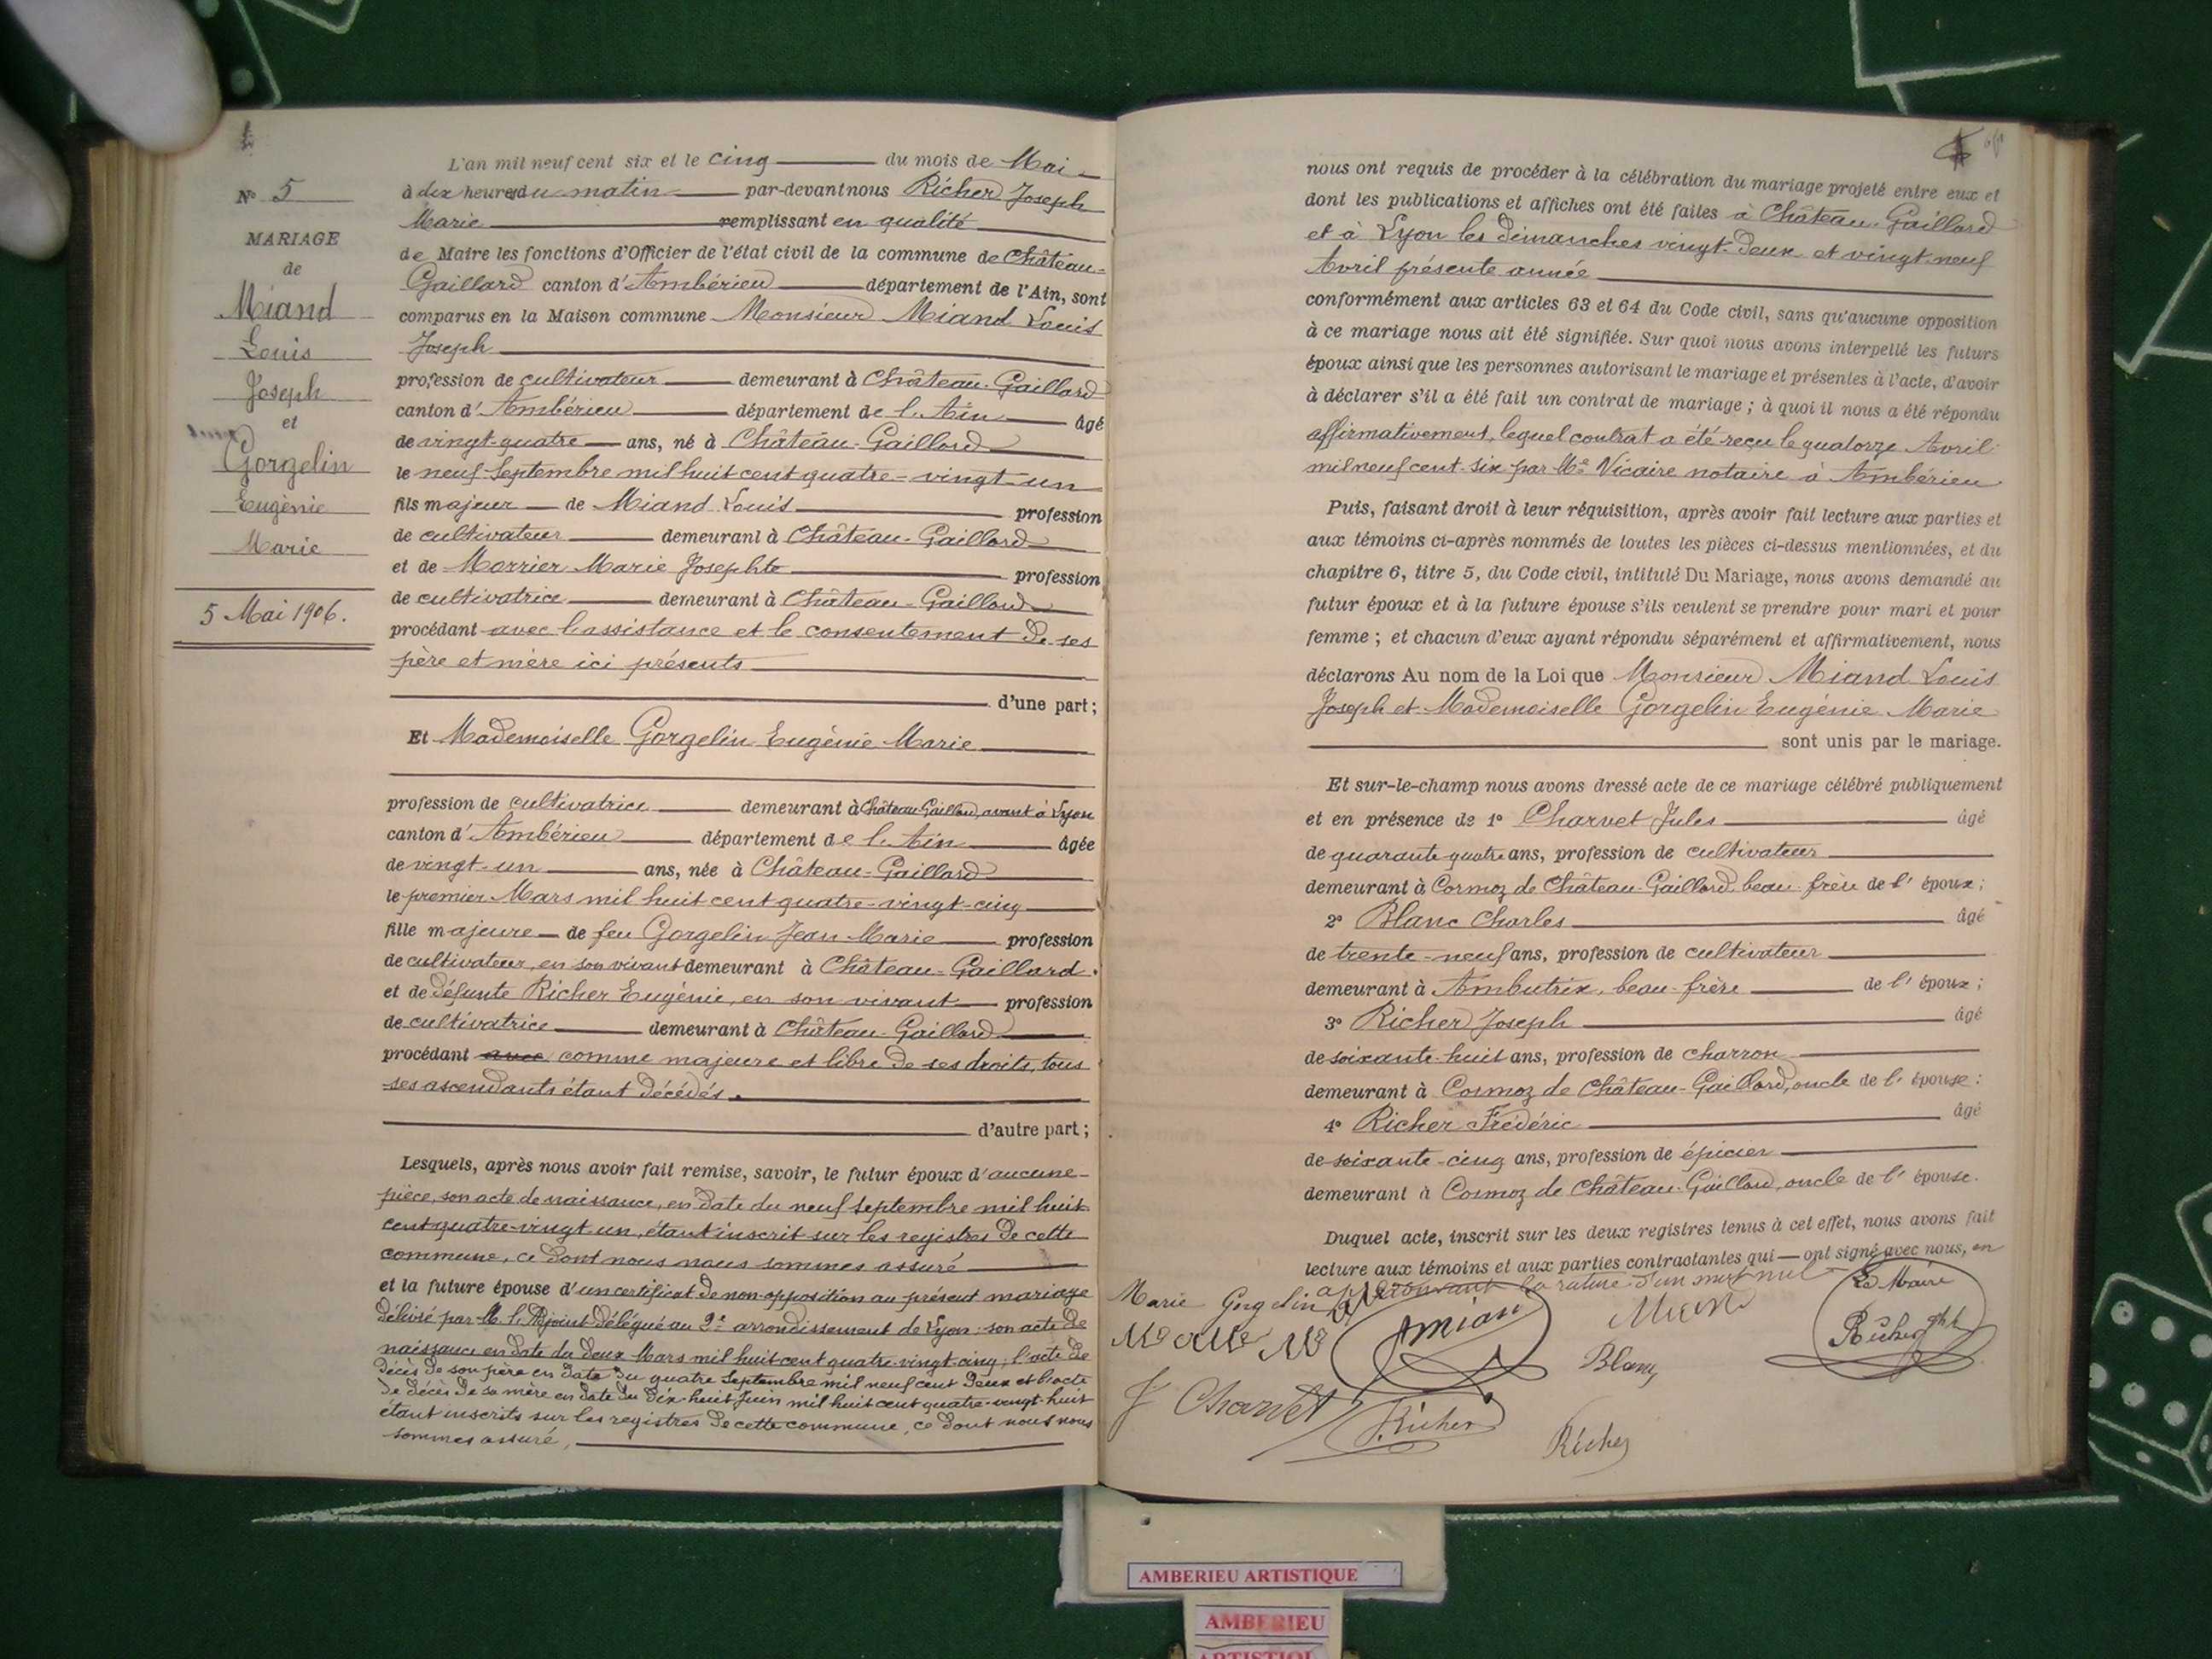 N° 5
MARIAGE
de
Miand
Louis
Joseph
et
Gorgelin
Eugènie
Marie
5 Mai 1906.
L'an mil neuf cent six et le cinq du mois de Mai
à dix heures du matin par-devant nous Richer Joseph
Marie remplissant en qualité
de Maire les fonctions d'Officier de l'état civil de la commune de Château-
Gaillard canton d'Ambérieu département de l'Ain, sont
comparus en la Maison commune Monsieur Miand Louis
Joseph
profession de cultivateur demeurant à Château-Gaillard
canton d'Ambérieu département de l'Ain âgé
de vingt-quatre ans, né à Château-Gaillard
le neuf Septembre mil huit cent quatre-vingt-un
fils majeur de Miand Louis profession
de cultivateur demeurant à Château-Gaillard
et de Morrier Marie Josephte profession
de cultivatrice demeurant à Château-Gaillard
procédant avec l'assistance et le consentement de ses
père et mère ici présents
d'une part;
Et Mademoiselle Gorgelin Eugènie Marie
profession de cultivatrice demeurant à Château-Gaillard, avant à Lyon
canton d'Ambérieu département de l'Ain âgée
de vingt-un ans, née à Château-Gaillard
le premier Mars mil huit cent quatre-vingt-cinq
fille majeure de feu Gorgelin Jean Marie profession
de cultivateur, en son vivant demeurant à Château-Gaillard.
et de défunte Richer Eugènie, en son vivant profession
de cultivatrice demeurant à Château-Gaillard
procédant avec comme majeure et libre de ses droits, tous
ses ascendants étant décédés.
d'autre part;
Lesquels, après nous avoir fait remise, savoir, le futur époux d'aucune
pièce, son acte de naissance, en date du neuf Septembre mil huit
cent quatre-vingt un, étant inscrit sur les registres de cette
commune, ce dont nous nous sommes assuré
et la future épouse d'un certificat de non-opposition au présent mariage
délivré par M. l'Adjoint délégué au 2e arrondissement de Lyon; son acte de
naissance en date du deux Mars mil huit cent quatre-vingt-cinq; l'acte de
décès de son père en date du quatre Septembre mil neuf cent deux et l'acte
de décès de sa mère en date du dix-huit Juin mil huit cent quatre-vingt-huit
étant inscrits sur les registres de cette commune, ce dont nous nous
sommes assuré,
nous ont requis de procéder à la célébration du mariage projeté entre eux et
dont les publications et affiches ont été faites à Château-Gaillard
et à Lyon les dimanches vingt-deux et vingt-neuf
Avril présente année
conformément aux articles 63 et 64 du Code civil, sans qu'aucune opposition
à ce mariage nous ait été signifiée. Sur quoi nous avons interpellé les futurs
époux ainsi que les personnes autorisant le mariage et présentes à l'acte, d'avoir
à déclarer s'il a été fait un contrat de mariage; à quoi il nous a été répondu
affirmativement, lequel contrat a été reçu le quatorze Avril
mil neuf cent six par Me Vicaire notaire à Ambérieu
Puis, faisant droit à leur réquisition, après avoir fait lecture aux parties et
aux témoins ci-après nommés de toutes les pièces ci-dessus mentionnées, et du
chapitre 6, titre 5, du Code civil, intitulé Du Mariage, nous avons demandé au
futur époux et à la future épouse s'ils veulent se prendre pour mari et pour
femme; et chacun d'eux ayant répondu séparément et affirmativement, nous
déclarons Au nom de la Loi que Monsieur Miand Louis
Joseph et Mademoiselle Gorgelin Eugénie Marie
sont unis par le mariage.
Et sur-le-champ nous avons dressé acte de ce mariage célébré publiquement
et en présence de 1° Charvet Jules âgé
de quarante quatre ans, profession de cultivateur
demeurant à Cormoz de Château-Gaillard beau-frère de l'époux;
2° Blanc Charles âgé
de trente-neuf ans, profession de cultivateur
demeurant à Ambutrix, beau-frère de l'époux;
3° Richer Joseph âgé
de soixante-huit ans, profession de charron
demeurant à Cormoz de Château-Gaillard, oncle de l'épouse:
4° Richer Frédéric âgé
de soixante-cinq ans, profession de épicier
demeurant à Cormoz de Château-Gaillard, oncle de l'épouse.
Duquel acte, inscrit sur les deux registres tenus à cet effet, nous avons fait
lecture aux témoins et aux parties contractantes qui ont signé avec nous, en
approuvant la rature d'un mot nul
Marie Gorgelin
Miand
Le Maire
Richer
Blanc
J Charvet
J. Richer
Richer
AMBERIEU ARTISTIQUE
AMBERIEU
ARTISTIQUE